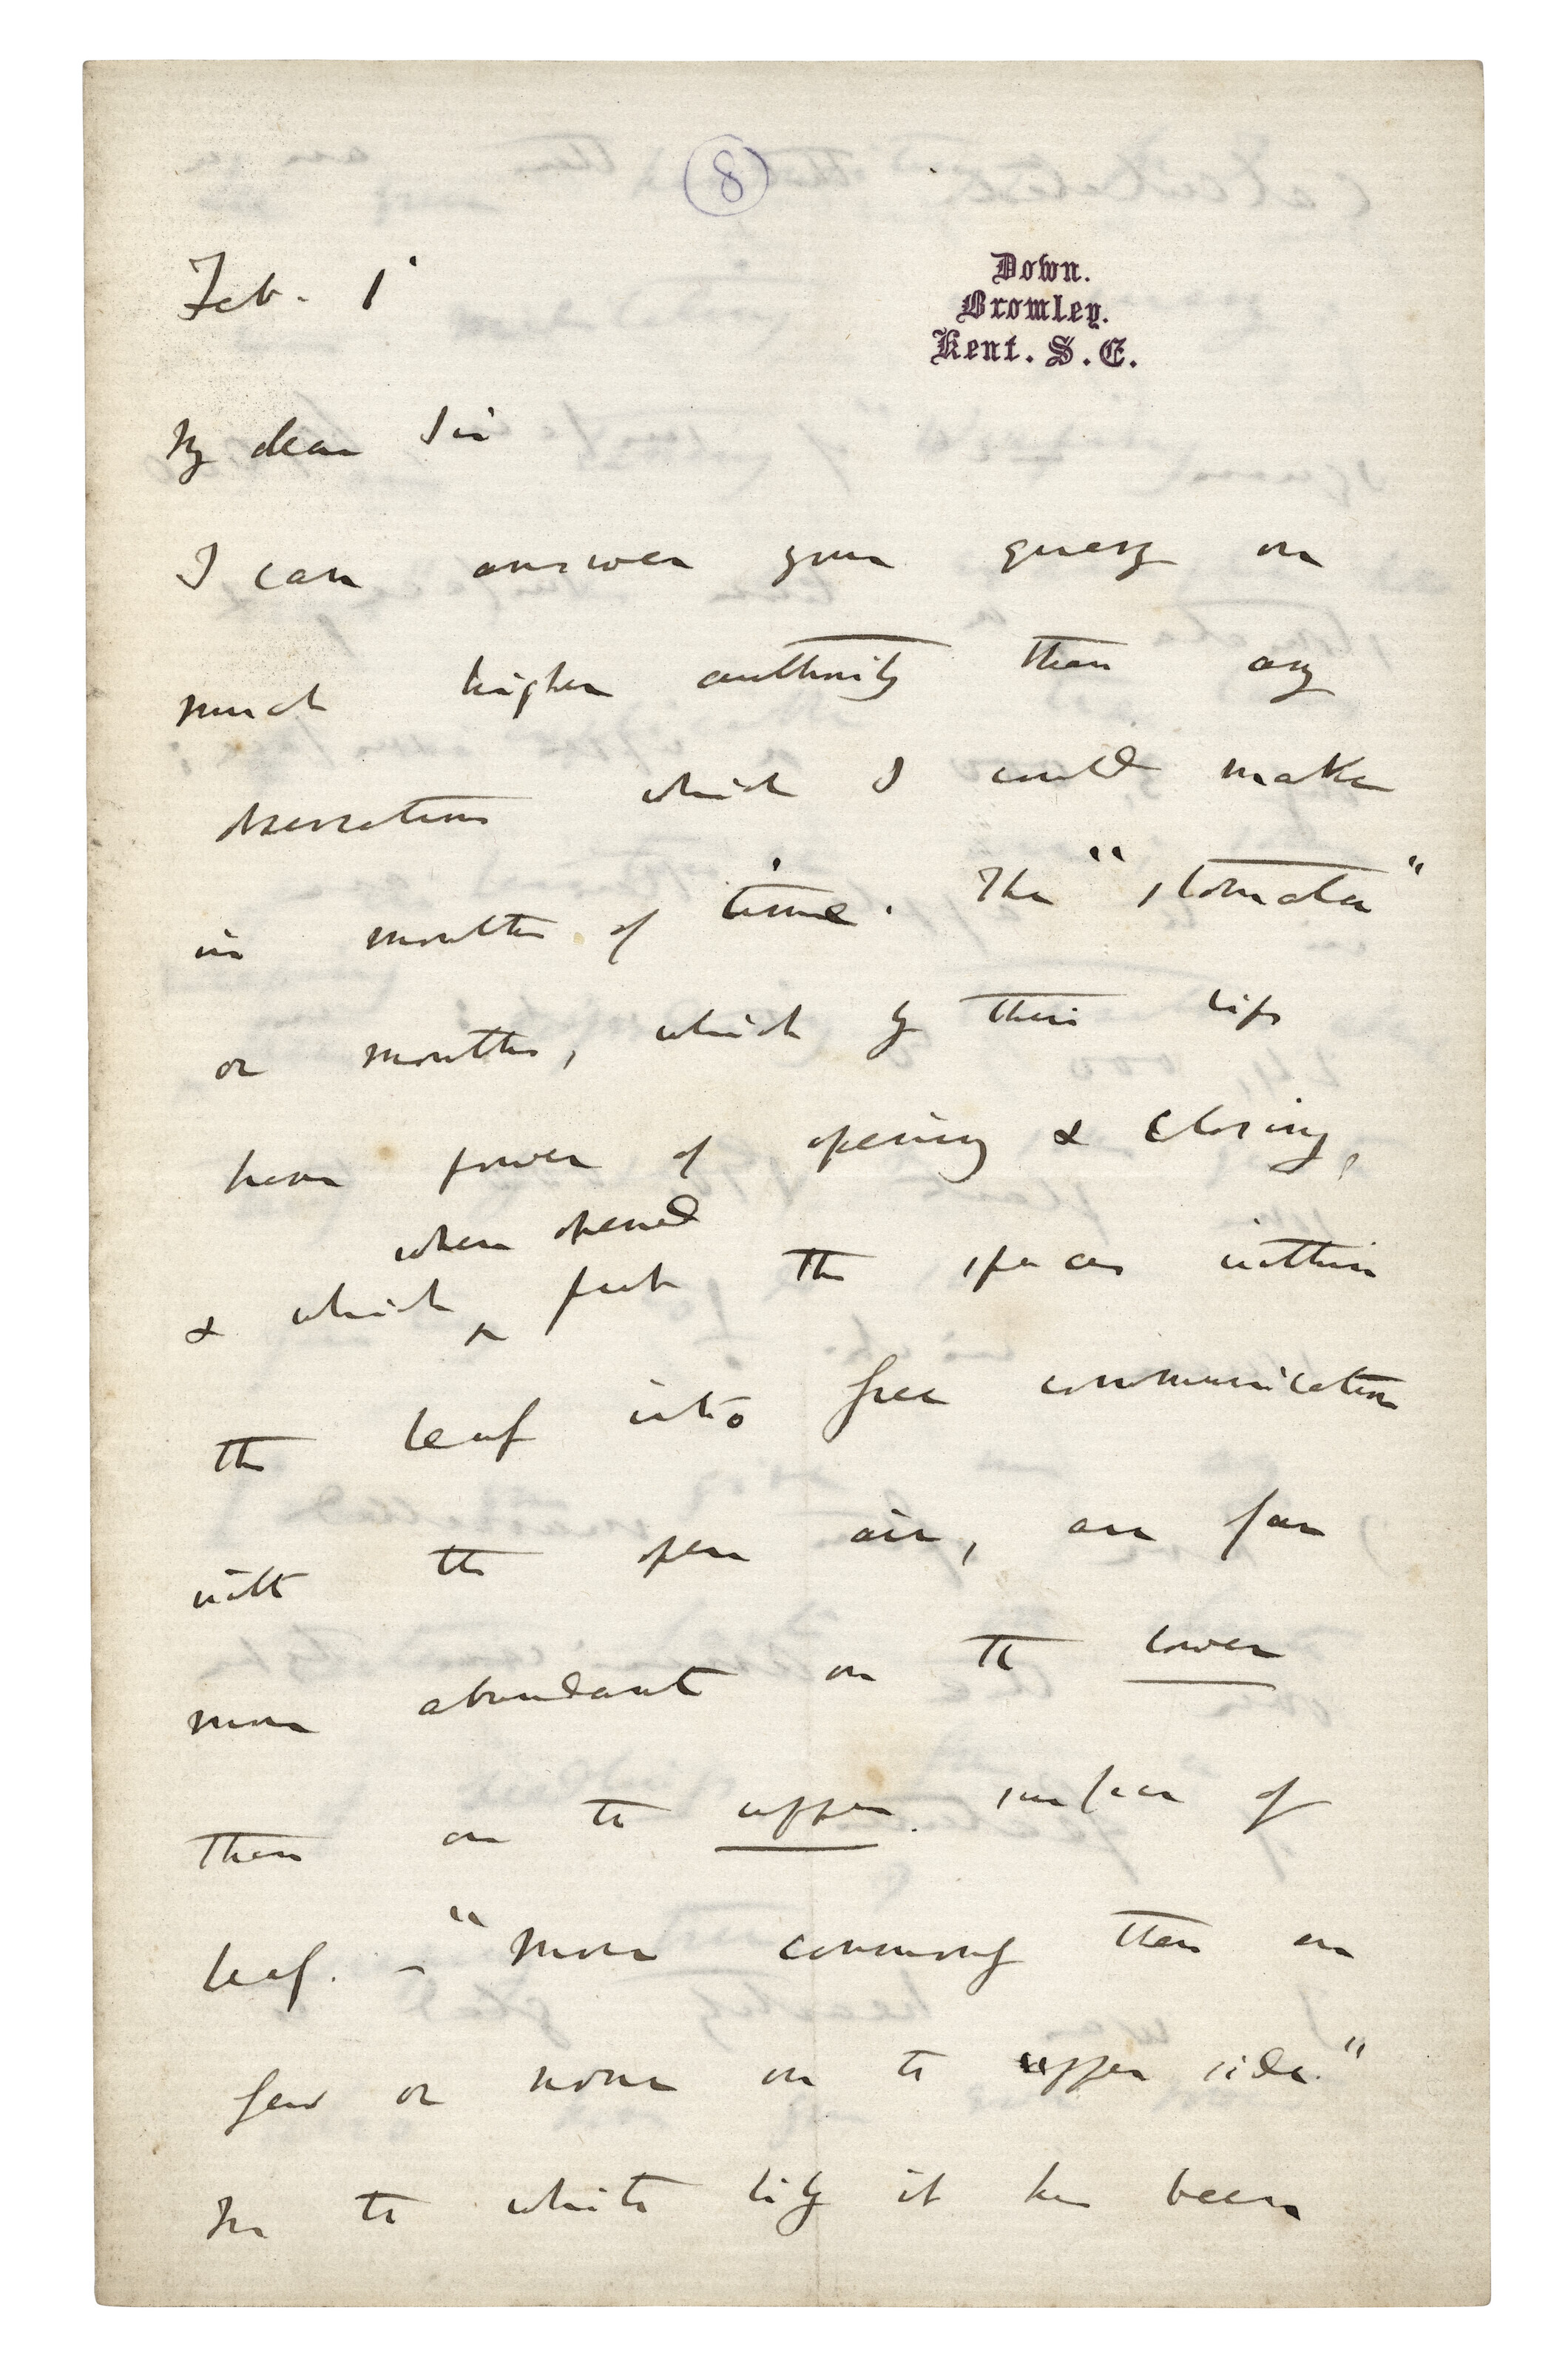 8
Feb. 1
Down.
Bromley.
Kent. S.E.
My dear Sir
I can answer your query on
much higher authority than any
observations which I could make
in months of time. The "stomata"
or mouths, which by their lips
have power of opening & closing,
& which when opened put the spaces within
the leaf into free communication
with the open air, are far
more abundant on the lower
than on the upper surface of
leaf. – "More commonly there are
few or none on the upper side."
In the white lily it has been